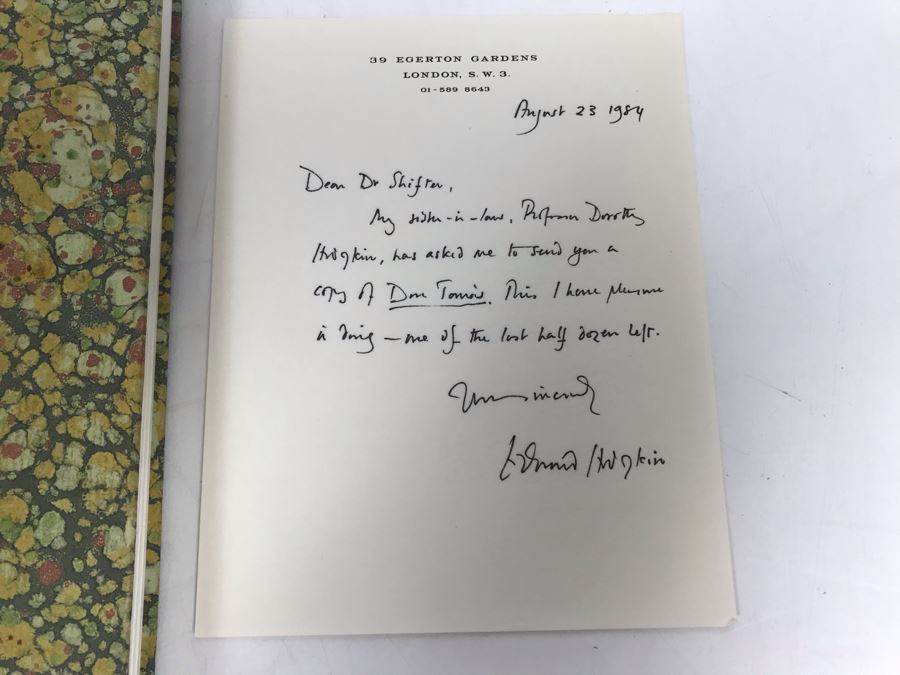 39 EGERTON GARDENS
LONDON, S. W. 3.
01-589 8643
August 23 1984
Dear Dr Shifter,
My sister-in-law, Professor Dorothy
Hodgkin, has asked me to send you a
copy of Don Tomás. This I have pleasure
in doing — one of the last half dozen left.
Yours sincerely
Edward Hodgkin